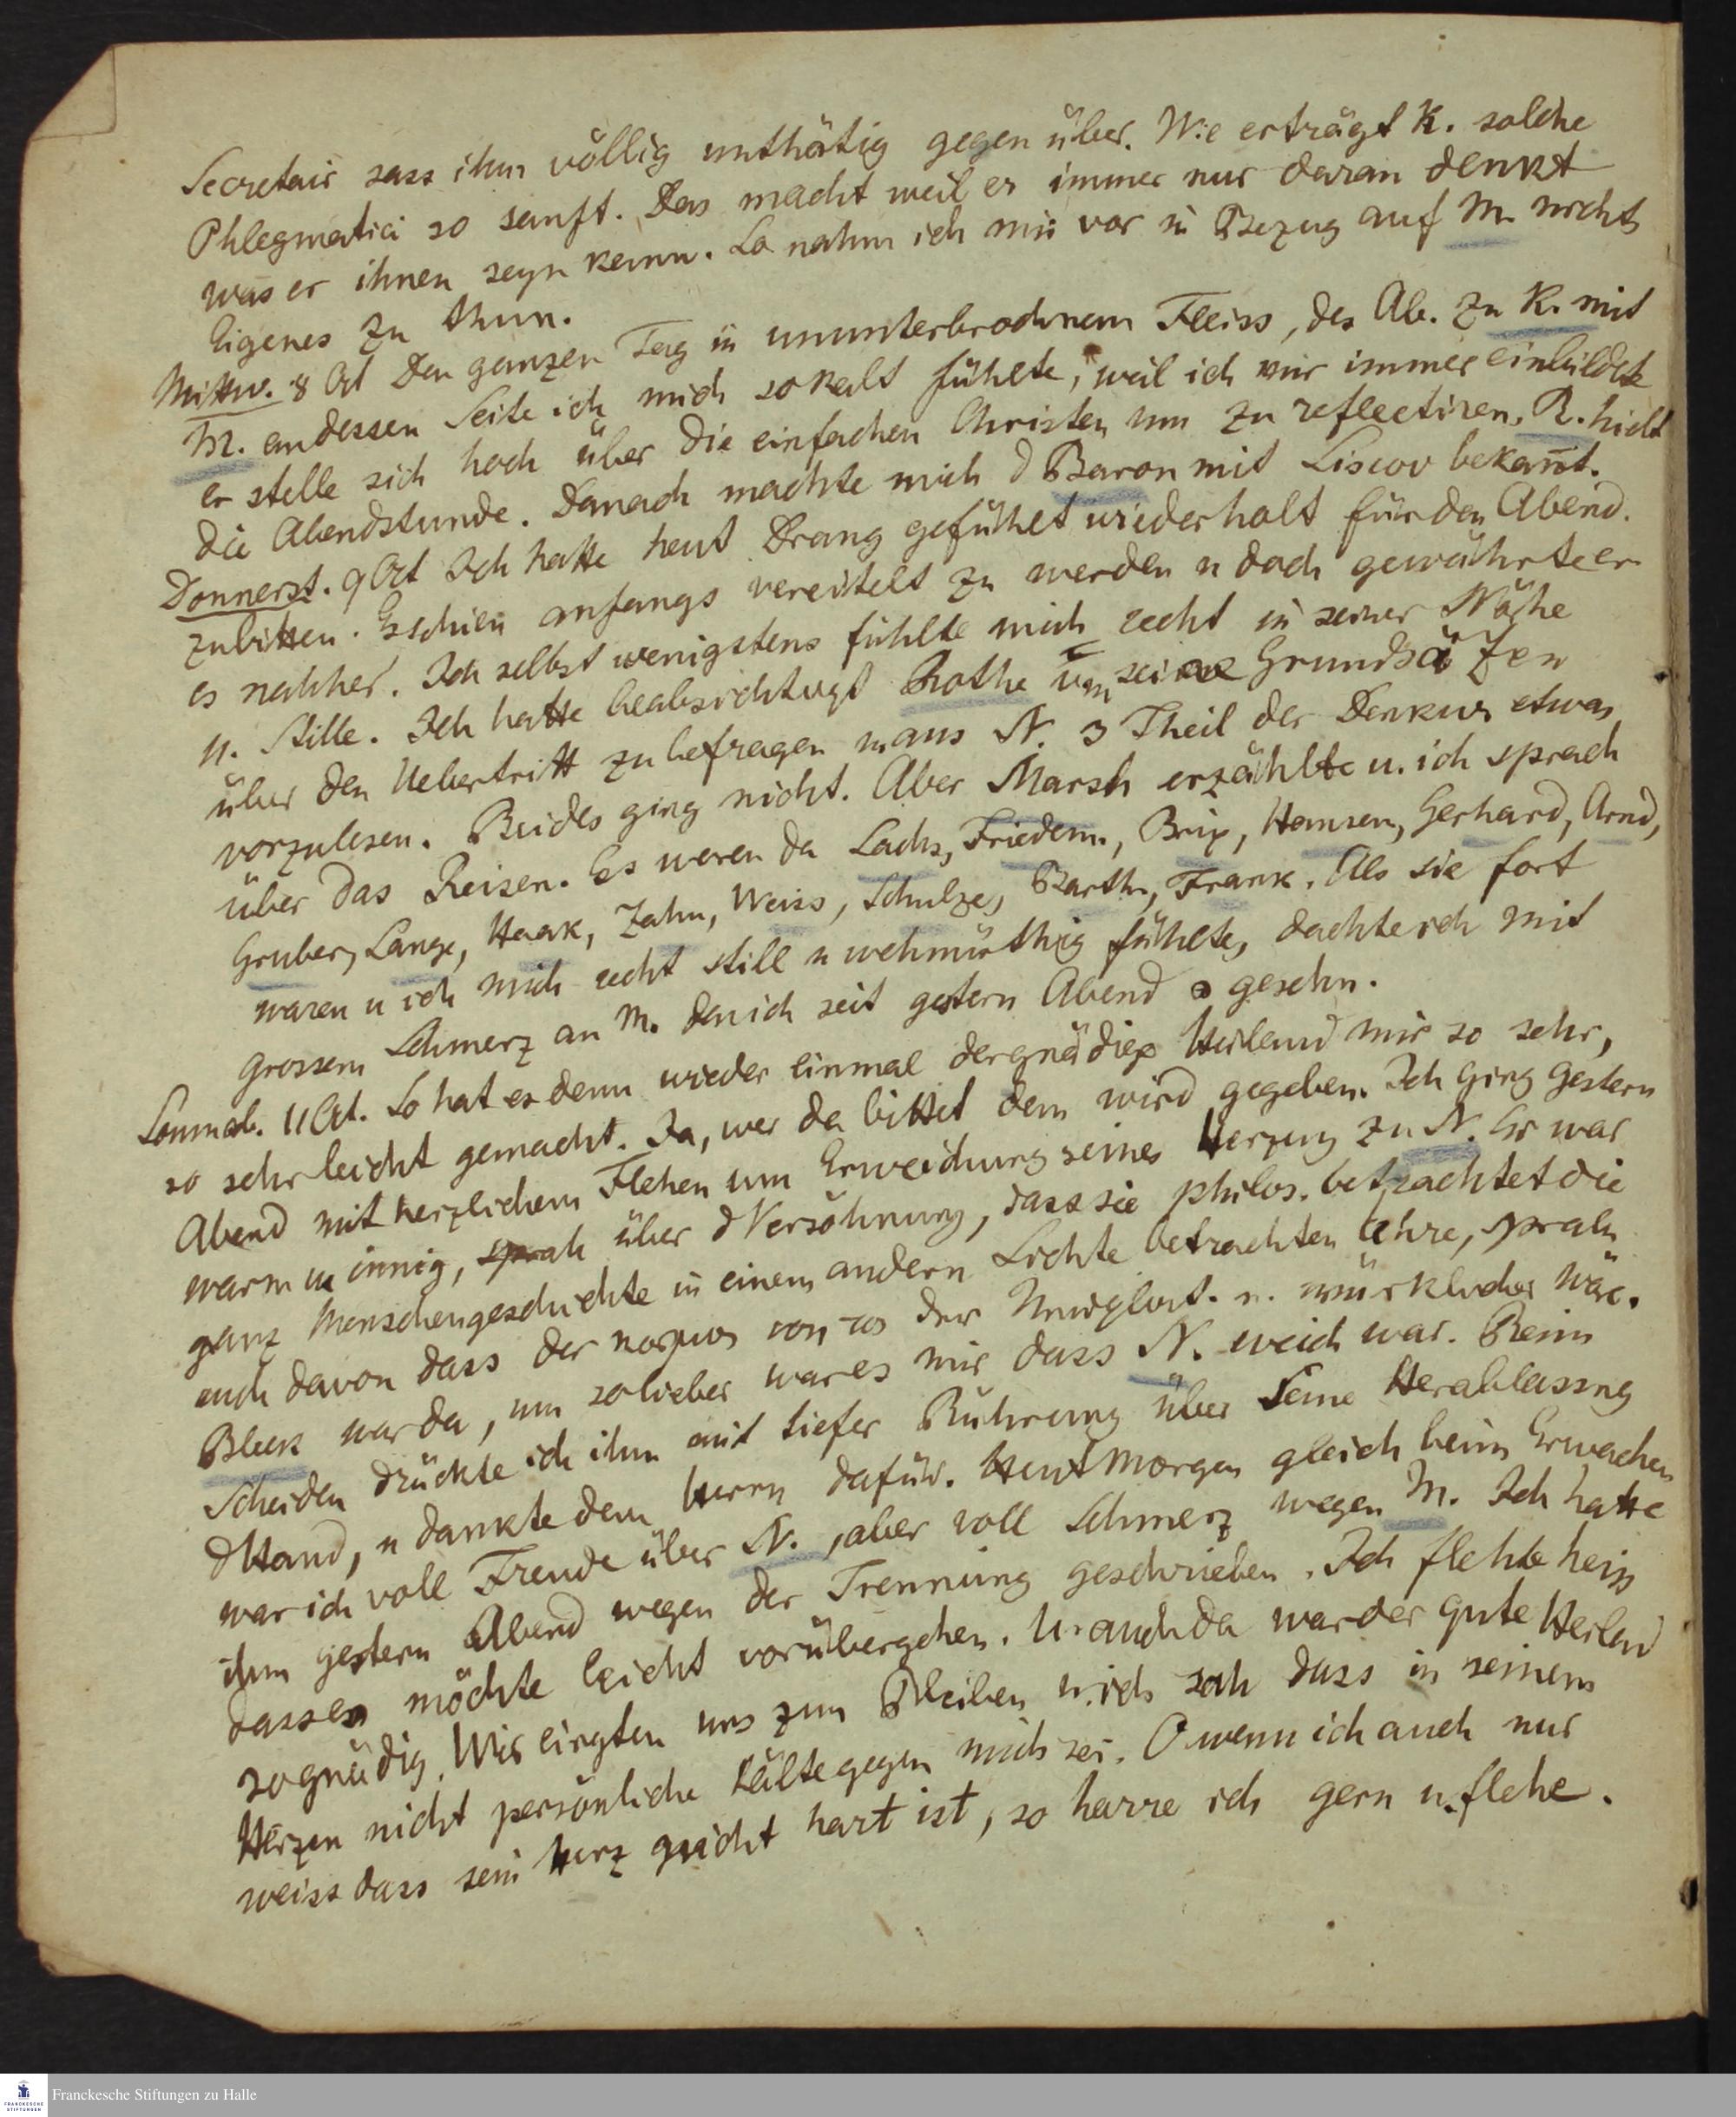 Secretair sass ihm völlig unthätig gegen über. Wie erträgt K. solche
Phlegmatici so sanft. Das macht weil er immer nur daran denkt
was er ihnen seyn kann. So nahm ich mir vor in Bezug auf M. nichts
Eigenes zu thun.
Mittw. 8 Oct Den ganzen Tag in ununterbrochnem Fleiss, des Ab. zu K. mit
M. an dessen Seite ich mich so kalt fühlte, weil ich mir immer einbildete
er stelle sich hoch über die einfachen Christen um zu reflectiren. R. hielt
die Abendstunde. Danach machte mich d Baron mit Liscov bekannt.
Donnerst. 9 Oct Ich hatte heut Drang gefühlet wiederholt für den Abend
zu bitten. Es schien anfangs vereitelt zu werden u doch gewährte er
es nachher. Ich selbst wenigstens fühlte mich recht in seiner Nähe
u. Stille. Ich hatte beabsichtugt Rothe um seine Grundsätzen
über den Uebertritt zu befragen u aus N. 3 Theil der Denkw etwas
vorzulesen. Beides ging nicht. Aber Marsh erzählte u. ich sprach
über das Reisen. Es waren da Lachs, Friedem., Brix, Hansen, Gerhard, Arnd,
Gruber, Lange, Haak, Zahn, Weiss, Schulze, Barth, Frank. Als sie fort
waren u ich mich recht still u wehmüthig fühlte, dachte ich mit
grossem Schmerz an M. den ich seit gestern Abend gesehn.
Sonnab. 11 Oct. So hat es denn wieder einmal der gnädige Heiland mir so sehr,
so sehr leicht gemacht. Ja, wer da bittet dem wird gegeben. Ich ging gestern
Abend mit herzlichem Flehen um Erweichung seines Herzens zu N. Er war
warm u innig, sprach über d Versöhnung, dass sie philos. betrachtet die
ganz Menschengeschichte in einem andern Lichte betrachten lehre, sprach
auch davon dass der von der u. würklicher wäre.
Bleek war da, um so lieber war es mir dass N. weich war. Beim
Scheiden drückte ich ihm mit tiefer Rührung über Seine Herablassung
d Hand, u dankte dem Herrn dafür. Heut Morgen gleich beim Erwachen
war ich voll Freude über N., aber voll Schmerz wegen M. Ich hatte
ihm gestern Abend wegen der Trennung geschrieben. Ich flehte heiss
dass es möchte leicht vorübergehen. U. auch da war der gute Heiland
so gnädig. Wir einigten uns zum Bleiben u. ich sah dass in seinem
Herzen nicht persönliche Kälte gegen mich sei. O wenn ich auch nur
weiss dass sein Herz nicht hart ist, so harre ich gern u. flehe.
FRANCKESCHE STIFTUNGEN
Franckesche Stiftungen zu Halle